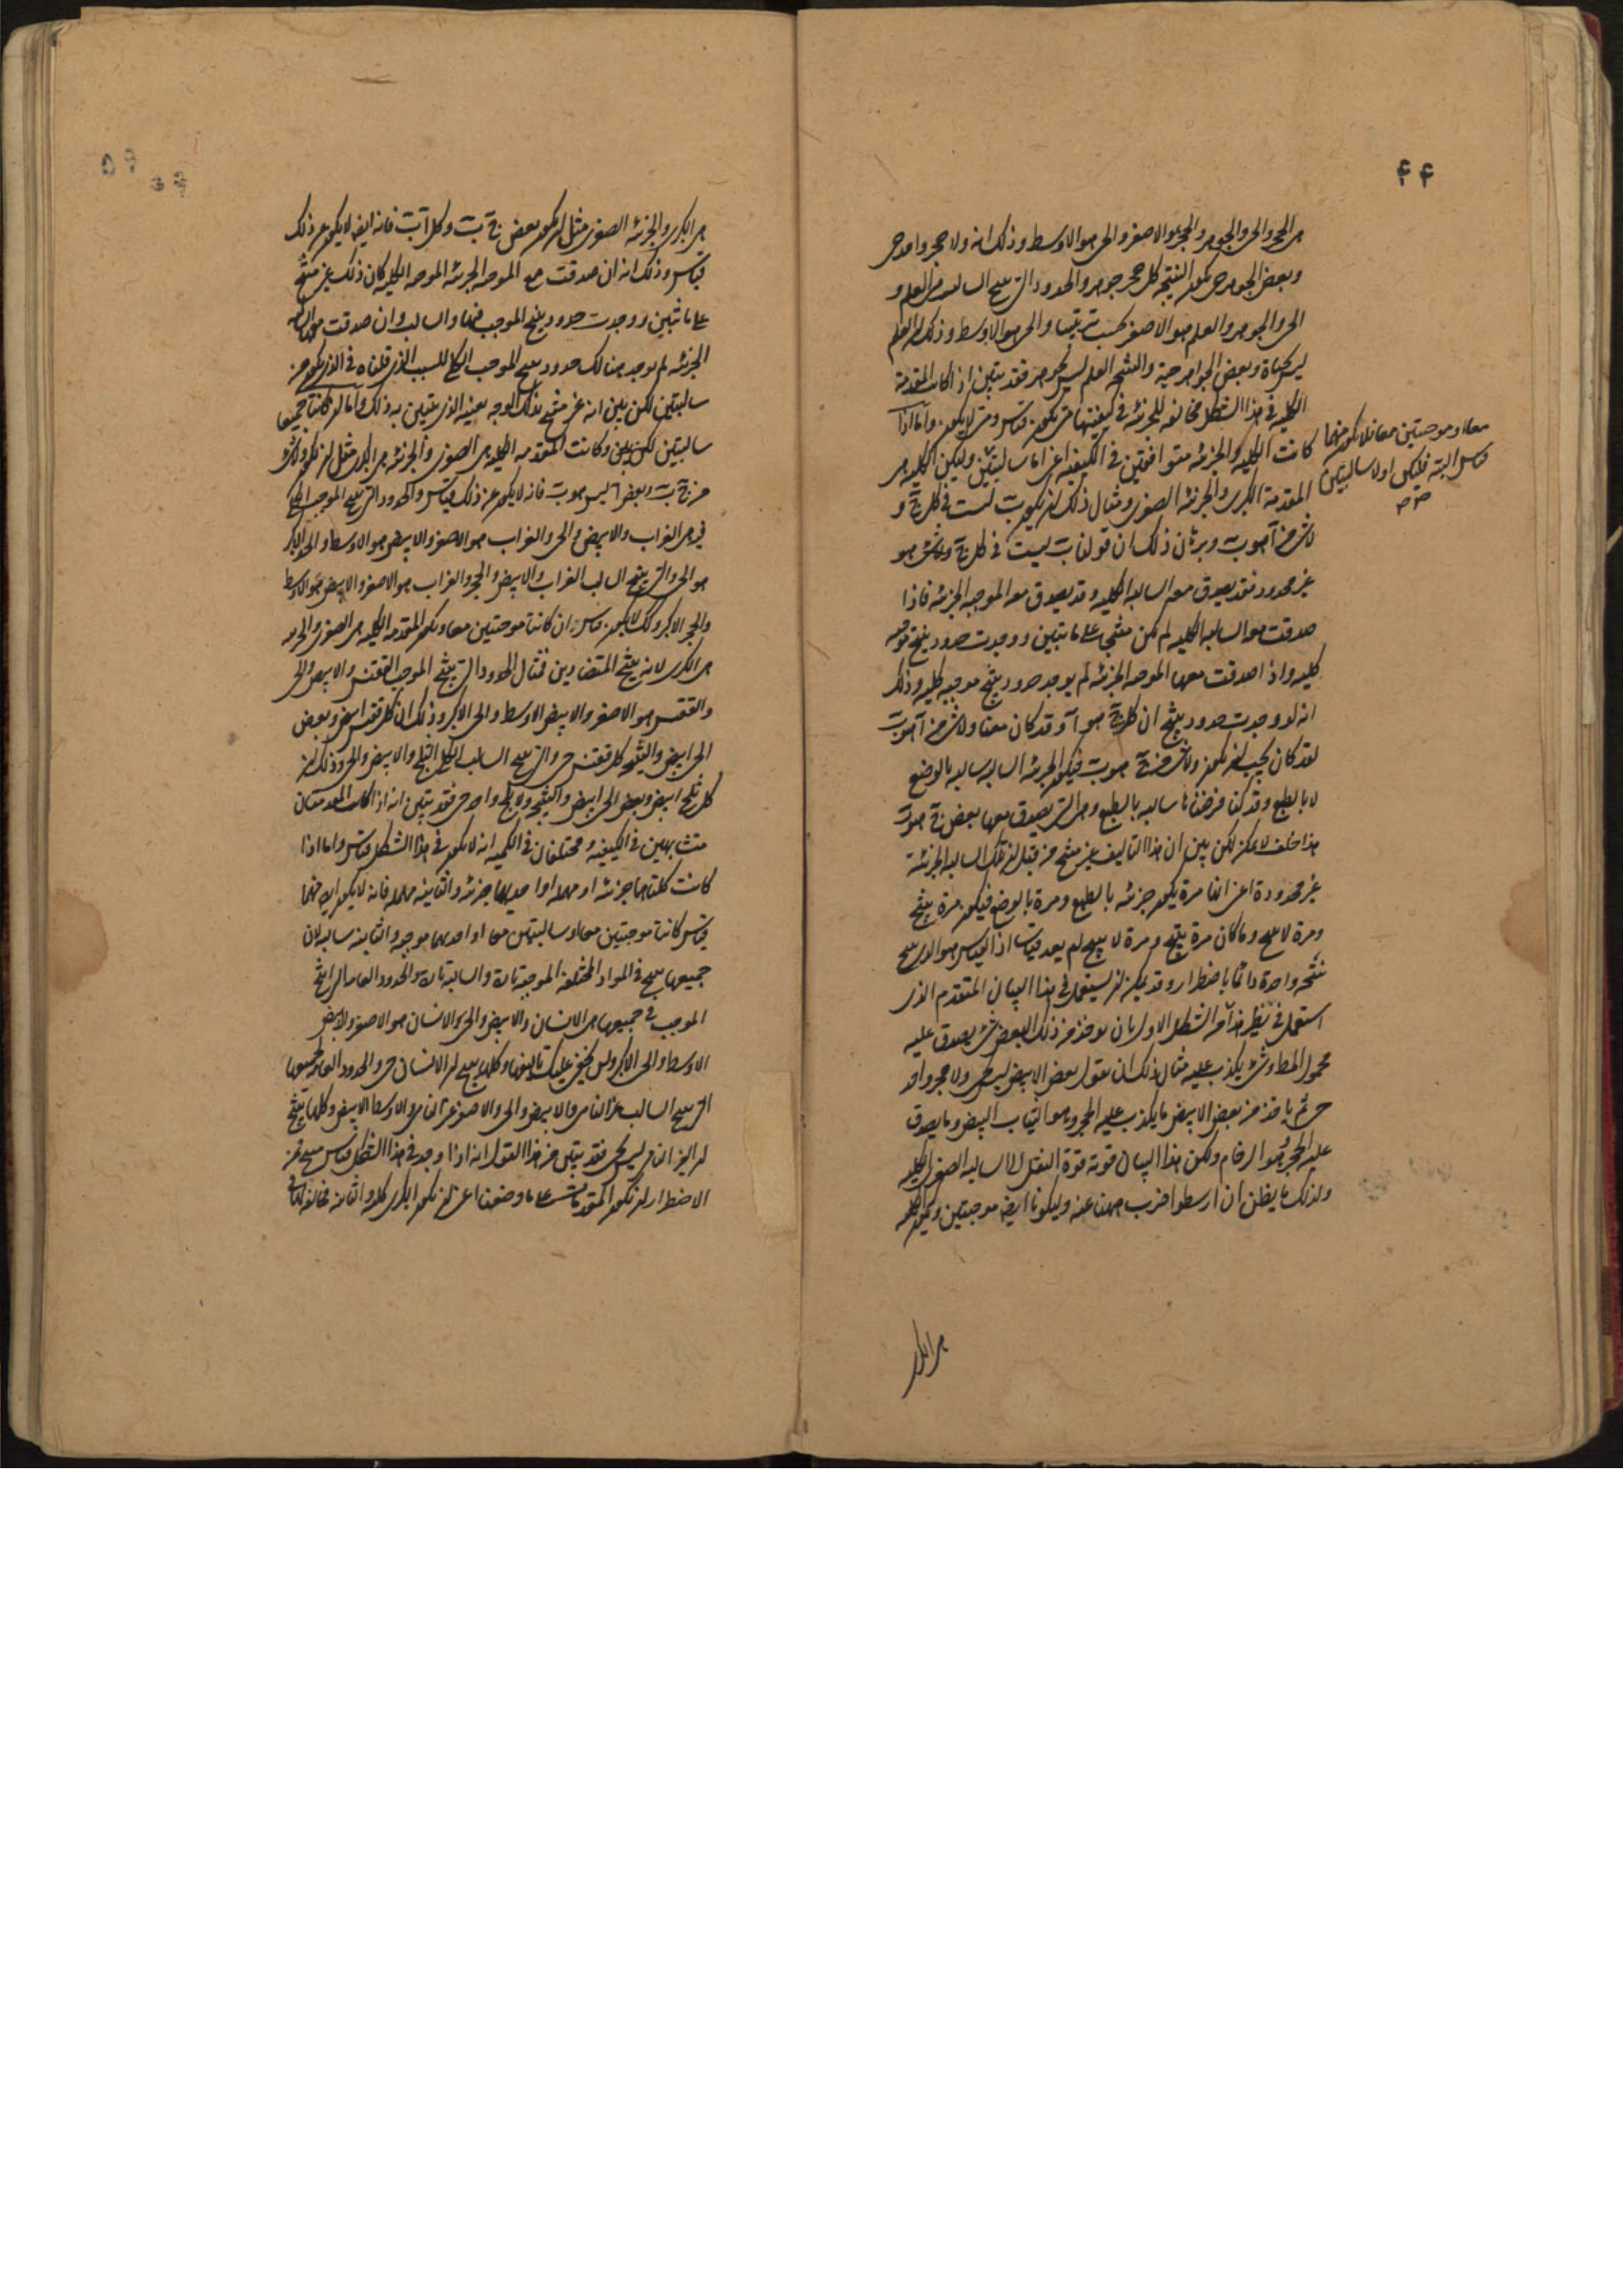 ۴۴
هى الحجر والحى والجوهر والحجر هو الاصغر والحى هو الاوسط وذلك انه ولا حجر واحد حى
وبعض الجوهر حى تكون النتيجة كل حجر جوهر والحدود التى تنتج السالب هى العلم و
الحى والجوهر والعلم هو الاصغر بحسب ترتيبنا والحى هو الاوسط وذلك ان العلم
ليس بحياة وبعض الجواهر حية والنتيجة العلم ليس بجوهر فقد تبين اذا كانت المقدمة
الكلية فى هذا الشكل مخالفة للجزئية فى كيفيتها متى يكون قياس ومتى لا يكون واما اذا
كانت الكلية والجزئية متوافقتين فى الكيفية اعنى اما سالبتين وليكن الكلية هى
معا او موجبتين معا فلا يكون منهما
قياس البتة فليكن اولا سالبتين
صح صح
المقدمة الكبرى والجزئية الصغرى ومثال ذلك ان يكون ب ليست فى كل ج و
لا شئ من آ هو ب وبرهان ذلك ان قولنا ب ليست فى كل ج ولا شئ هو
غير محدود فقد يصدق معه السالبة الكلية وقد يصدق معه الموجبة الجزئية فاذا
صدقت معه السالبة الكلية لم تكن منتجة على ما تبين ووجدت حدود ينتج موجبة
كلية واذا صدقت معها الموجبة الجزئية لم يوجد حدود ينتج موجبة كلية وذلك
انه لو وجدت حدود ينتج ان كل ج هو آ وقد كان معنا ولا شئ من آ هو ب
لقد كان يجب ان يكون ولا شئ من ج هو ب فيكون الجزئية السالبة سالبة بالوضع
لا بالطبع وقد كنا فرضناها سالبة بالطبع وهى التى يصدق معها بعض ج هو ب
هذا خلف لا يمكن لكن يبين ان هذا التأليف غير منتج من قبل ان تلك السالبة الجزئية
غير محدودة اعنى انها مرة يكون جزئية بالطبع ومرة بالوضع فيكون مرة ينتج
ومرة لا ينتج وما كان مرة ينتج ومرة لا ينتج لم يعد قياسا اذ القياس هو الذى ينتج
نتيجة واحدة دائما باضطرار وقد يمكن ان يستعمل فى هذا البيان المتقدم الذى
استعمل فى نظير هذا من الشكل الاول بان يوخذ من ذلك البعض شئ يصدق عليه
محمول المطلوب وشئ يكذب عليه مثال ذلك ان نقول بعض الابيض ليس بحى ولا حجر واحد
حى ثم ياخذ من بعض الابيض ما يكذب عليه الحجر وهو الثياب البيض وما يصدق
عليه الحجر وهو الرخام ولكن هذا البيان قوته قوة النقل الى السالبة الصغرى الكلية
ولذلك ما يظن ان ارسطو اضرب ههنا عنه وليكونا ايضا موجبتين ويكون الكلية
هى الكبرى
هى الكبرى والجزئية الصغرى مثل ان يكون بعض ج ب وكل آ ب فانه ايضا لا يكون عن ذلك
قياس وذلك انه ان صدقت مع الموجبة الجزئية الموجبة الكلية كان ذلك غير منتج
على ما تبين ووجدت حدود ينتج الموجب فيها والسالب وان صدقت معها السالبة
الجزئية لم يوجد هنالك حدود ينتج الموجب الكلى للسبب الذى قلناه فى الذى يكون من
سالبتين لكن يبين انه غير منتج بذلك الوجه بعينه الذى يتبين به ذلك واما ان كانتا جميعا
سالبتين وكانت المقدمة الكلية هى الصغرى والجزئية هى الكبرى مثل ان يكون ولا شئ
من ج ب وبعض آ ليس هو ب فانه لا يكون عن ذلك قياس والحدود التى تنتج الموجب الكلى
فيه هى الغراب والابيض والحى والغراب هو الاصغر والابيض هو الاوسط والحى الاكبر
هو الحى والتى ينتج السالب الغراب والابيض والحجر والغراب هو الاصغر والابيض هو الاوسط
والحجر الاكبر وكذلك لا يكون قياس ان كانتا موجبتين معا وتكون المقدمة الكلية هى الصغرى والجزئية
هى الكبرى لانه ينتج المتضادين فمثال الحدود التى ينتج الموجب الققنس والابيض والحى
والققنس هو الاصغر والابيض الاوسط والحى الاكبر وذلك ان كل ققنس ابيض وبعض
الحى ابيض والنتيجة كل ققنس حى والتى تنتج السالب الكلى الثلج والابيض والحى وذلك ان
كل ثلج ابيض وبعض الحى ابيض والنتيجة ولا ثلج واحد حى فقد تبين انه اذا كانت المقدمتان
متشابهتين فى الكيفية ومختلفتان فى الكمية انه لا يكون فى هذا الشكل قياس واما اذا
كانت كلتاهما جزئية او مهملة او احديهما جزئية والثانية مهملة فانه لا يكون ايضا منهما
قياس كانتا موجبتين معا او سالبتين معا او احديهما موجبة والثانية سالبة لان
جميعها ينتج فى المواد المختلفة الموجبة تارة والسالبة تارة والحدود العامة التى ينتج
الموجب فى جميعها هى الانسان والابيض والحى والانسان هو الاصغر والابيض
الاوسط والحى الاكبر وليس يخفى عليك تاليفها وكلها ينتج ان الانسان حى والحدود العامة لجميعها
التى تنتج السالب غير الناس والابيض والحى والاصغر غير الناس والاوسط الابيض وكلها ينتج
ان غير الناس ليس بحى فقد تبين من هذا القول انه اذا وجد فى هذا الشكل قياس منتج فمن
الاضطرار ان تكون المقدمات على ما وضعنا اعنى ان تكون الكبرى كلية والثانية مخالفة لها فى